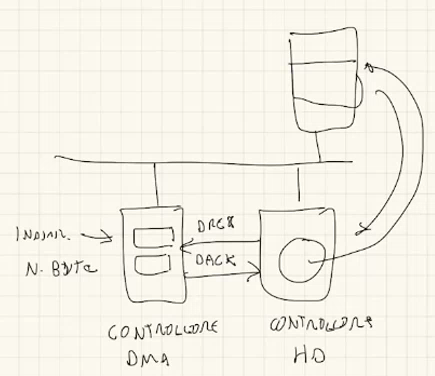 INDIRIZ.
N. BYTE
DREQ
DACK
CONTROLLORE
DMA
CONTROLLORE
HD